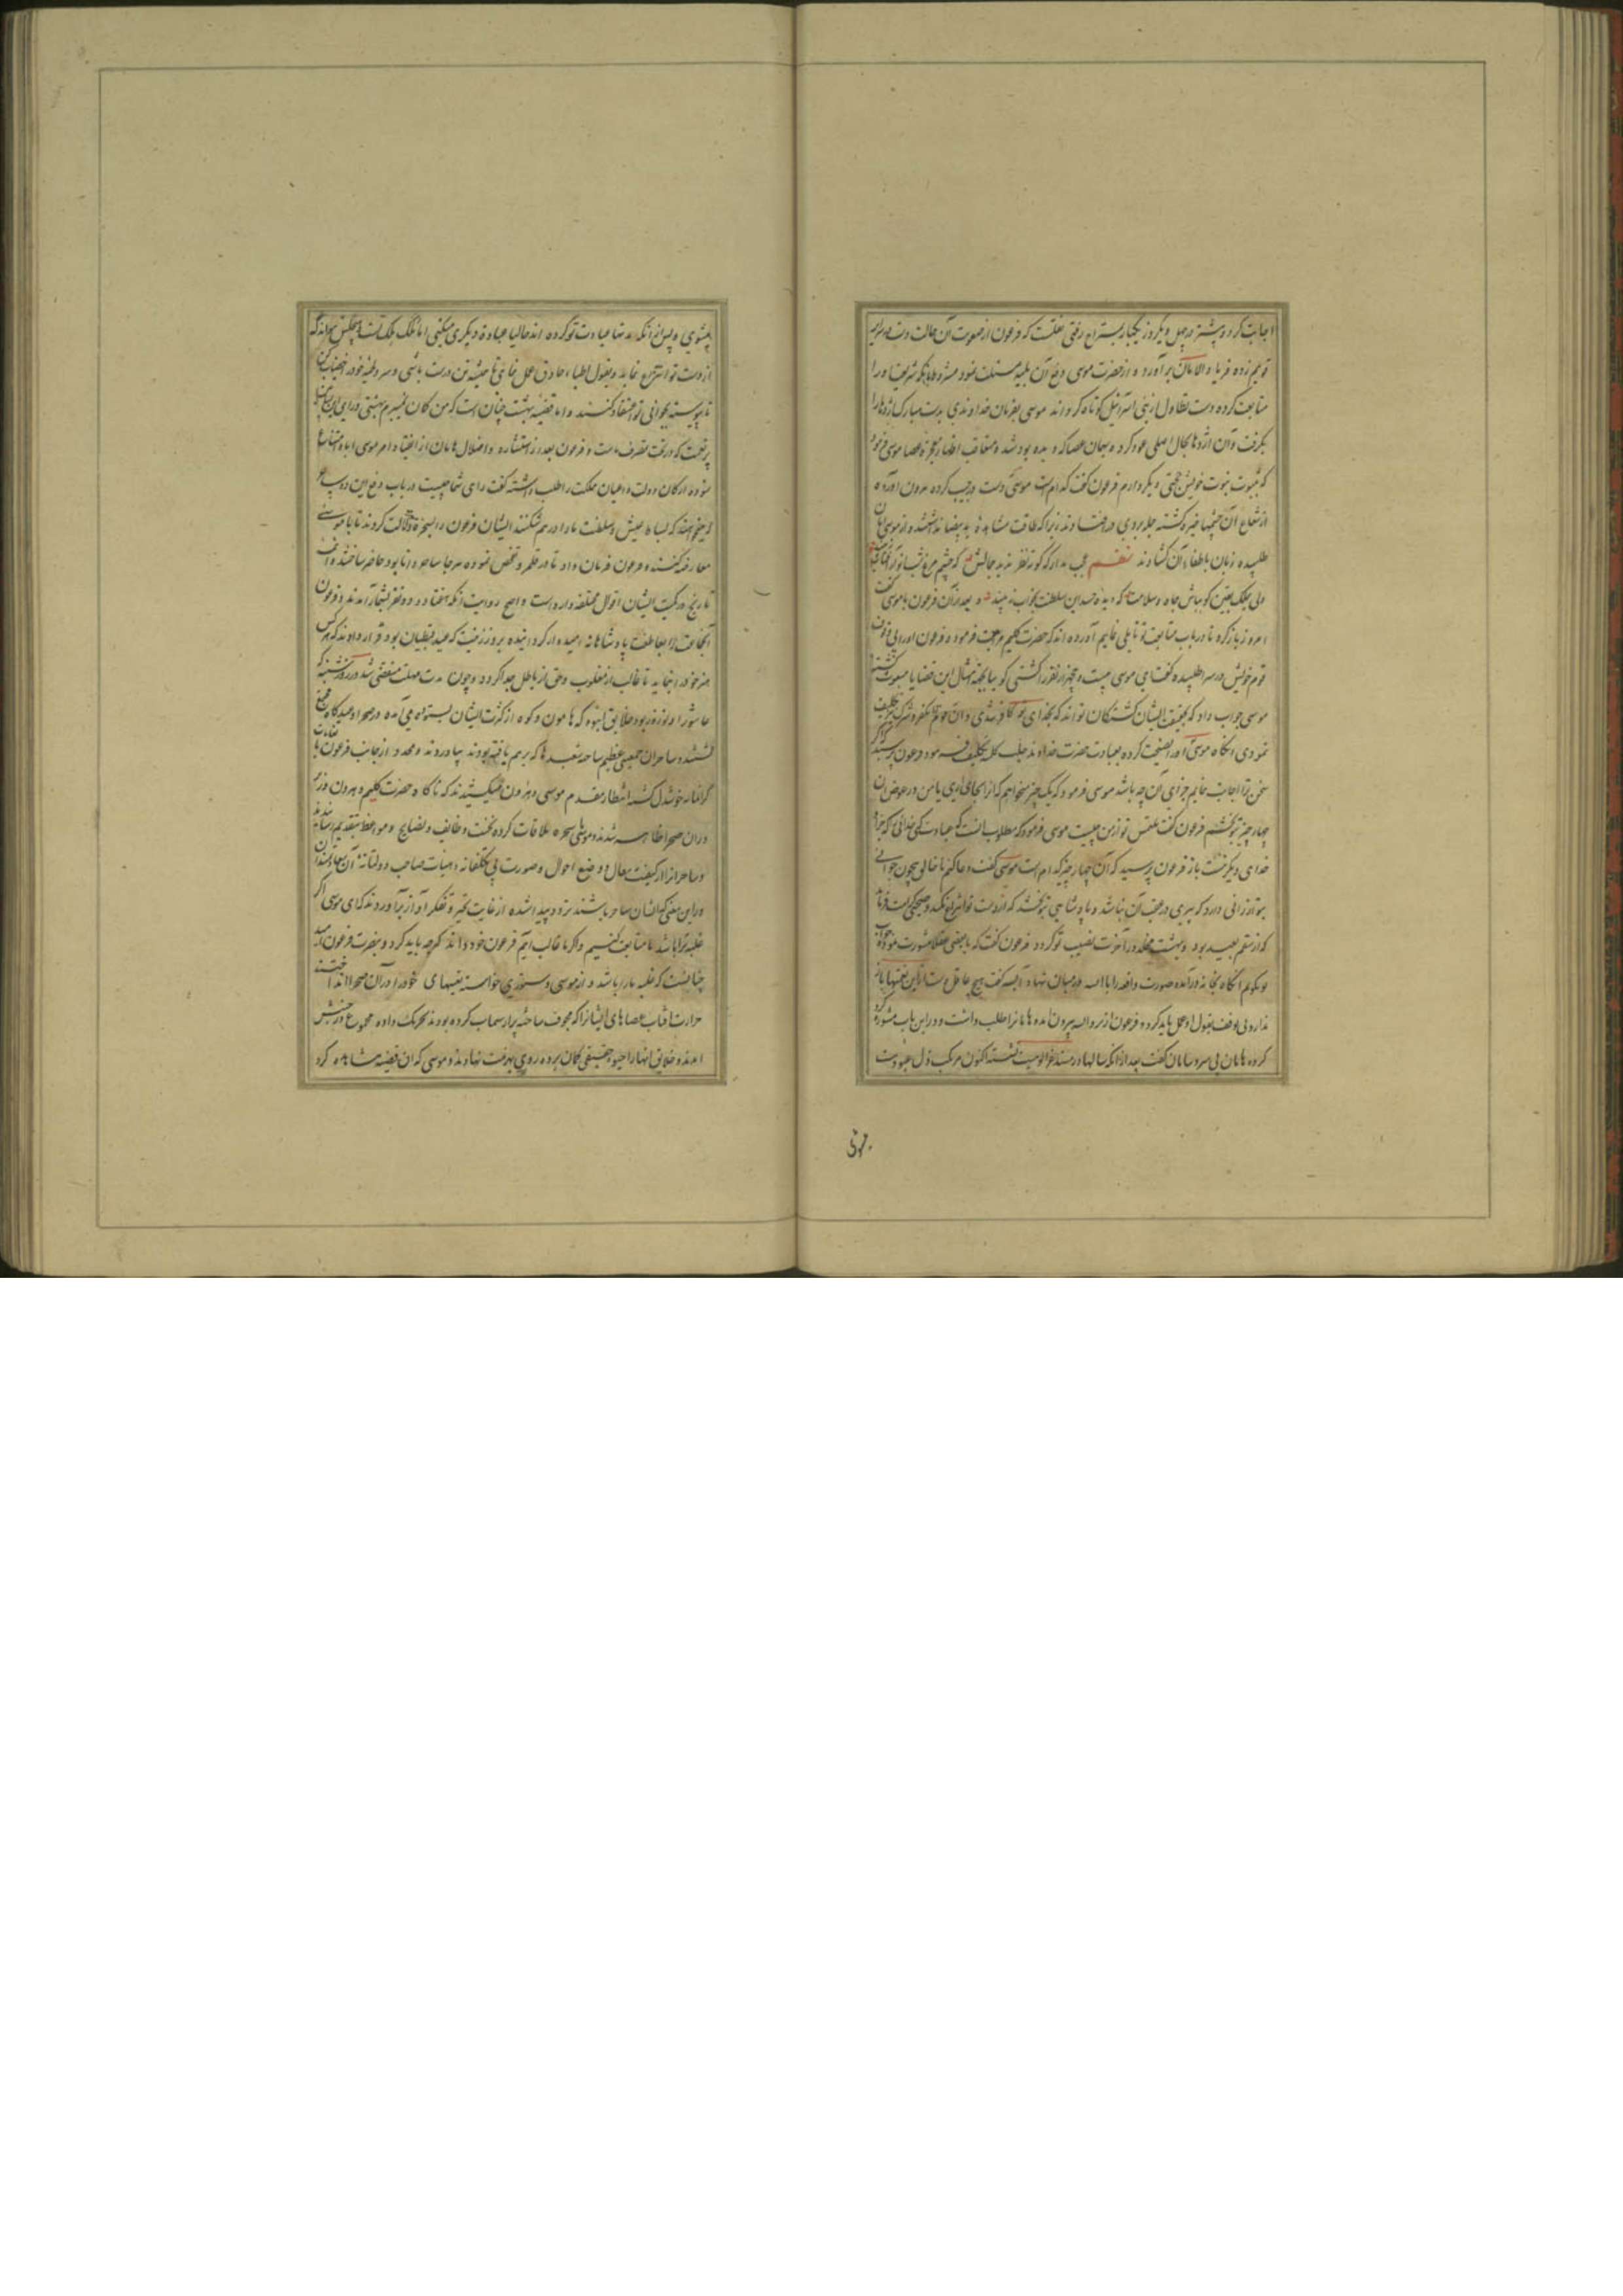 اجابت کرد و پیشتر در چهل و یکروز یکبار بستراح رفتی نقلست که فرعون از صعوبت آن حالت دست بر سریر
قویم زده فریاد الامان برآورد و از حضرت موسی دفع آن بلیه مسئلت نمود مشروط بانکه شریعت او را
متابعت کرده دست تطاول از بنی اسرائیل کوتاه کرداند موسی بفرمان خداوندی بدست مبارک اژدها را
بکرفت و آن اژدها بحال اصلی عود کرده همان عصا که دیده بود شد و متعاقب اظهار معجزه عصا موسی فرمود
که بثبوت نبوت خویش حجتی دیکر دارم فرعون کفت کدام است موسی دست در جیب کرده بیرون آورد که
از شعاع آن چشمها خیره کشته جمله بروی در افتادند زیرا که طاقت مشاهده ید بیضا نداشتند و از موسی امان
طلبیده زبان باطفاء آن کشادند نظم عجب مدار که کور نظر ندید جمالش که چشم مرغ شب
ولی بچنک یقین کو بباش جاه و سلامت که دیده حسد این سلطنت بخواب نبیند و بعد از آن فرعون با موسی کفت
امروز باز کرد تا در باب متابعت تو تاملی نمایم آورده اند که حضرت کلیم مراجعت فرمود و فرعون او را بی وقوف
قوم خویش در سر طلبیده کفت ای موسی چیست و چند نفر را کشتی کو بیا بجهة امثال این قضایا مبعوث کشته
موسی جواب داد که بحقیقت ایشان کشتکان تو اند که بخدای تو کافر نشدی و آن جمع را بکفر و شرک تکلیف
نمودی آنکاه موسی او را نصیحت کرده بعبادت حضرت خداوند جلیل کلمه تکلیف فرمود فرعون پرسید که اکر
سخن ترا اجابت نمایم جزای آن چه باشد موسی فرمود که یک چیز میخواهم که از بجای آری با من در عوض آن
چهار چیز بتو بخشم فرعون کفت ملتمس تو از من چیست موسی فرمود که مطلوب آنست که عبادت کنی خدائی که جز او
خدای دیکر نیست باز فرعون پرسید که آن چهار چیز کدام است موسی کفت دعا کنم تا خالق بیچون جوانی
بتو ارزانی دارد که پیری در عقب آن نباشد و پادشاهی بتو بخشد که از دست تو انتزاع نکند و صحتی کرامت فرماید
که از سقم بعید بود و بهشت مخلد در آخرت نصیب تو کردد فرعون کفت که با بعضی عقلا مشورت نموده جواب
تو بکویم آنکاه بخانه درآمده صورت واقعه را با آسیه در میان نهاد آسیه کفت هیچ عاقل دست از این نعمتها باز
ندارد بی توقف بقول او عمل باید کرد و فرعون از نزد آسیه بیرون آمده هامان را طلب داشت و در این باب مشوره کرد
کرده هامان بی سر و سامان کفت بعد از آنکه سالها در مسند عز الوهیت نشسته اکنون مرکب ذل عبودیت
میشوی و پس از آنکه مدتها عبادت تو کرده اند حالیا عبادة دیکری میکنی اما ملک ملک تست و هیچکس نتواند که
از دست تو انتزاع نماید و بقول اطباء حاذق عمل نمای تا همیشه تن درست باشی و سر و لحیه خود را خضاب کن
تا پیوسته بجوانی تو اعتقاد کنند و اما قضیه بهشت چنان است که من کمان نمیبرم بهشتی ورای این
پر نعمت که در تحت تصرف است و فرعون بعد از استشاره و اضلال هامان از انقیاد امر موسی ابا و امتناع
نموده ارکان دولت و اعیان مملکت را طلب داشته کفت رای شما چیست در باب دفع این دو ساحر
که میخواهند که بساط عیش و سلطنت ما را در هم شکنند ایشان فرعون را بسحره دلالت کردند تا با موسی
معارضه کنند و فرعون فرمان داد تا در قلمرو تفحص نموده هر جا ساحر دانا بود حاضر ساختند و ائمه
تاریخ در کمیت ایشان اقوال مختلفه وارد است و اصح روایت آنکه هفتاد و دو نفر بشمار آمدند و فرعون
آن جماعت را بعاطفت پادشاهانه امیدوار کردانیده بروز زینت که عید قبطیان بود قرار دادند که هر کس
هنر خود را بنماید تا غالب از مغلوب و حق از باطل جدا کردد و چون مدت مهلت منقضی شد در روز شنبه که
عاشورا و نوروز بود خلایق انبوه که هامون و کوه از کثرت ایشان بستوه می آمده در صحرا و عیدکاه جمع
کشتند و ساحران جمعیتی عظیم ساخته شعبدها که بر هم یافته بودند بیاوردند و محدد از جانب فرعون با
کرانمار خوشدل کشته انتظار مقدم موسی و هرون میکشیدند که ناکاه حضرت کلیم و هرون وزیر
در آن صحرا ظاهر شدند و موسی با سحره ملاقات کرده نخست وظایف و نصایح و مواعظ بتقدیم رسانیدند
و ساحران را از کیفیت مقال و وضع احوال و صورت بی تکلفانه و هیات صاحب دولتانه آن سعادتمندان
در این معنی که ایشان ساحر باشند تردد پیدا شده از غایت تحیر و تفکر آواز برآوردند که ای موسی اکر
غلبه ترا باشد ما متابعت کنیم و اکر ما غالب آئیم فرعون خود داند که چه باید کرد و بنصرت فرعون امید
چنانست که غلبه ما را باشد و از موسی دستوری خواسته تعبیهای خود را در آن صحرا انداختند
حرارت آفتاب عصاهای ایشانرا که مجوف ساخته پر از سیماب کرده بودند تحریک داده مجموع در جنبش
آمدند و خلایق آنها را حیوة حقیقی کمان برده روی بهزیمت نهادند و موسی که آن قضیه مشاهده کرد